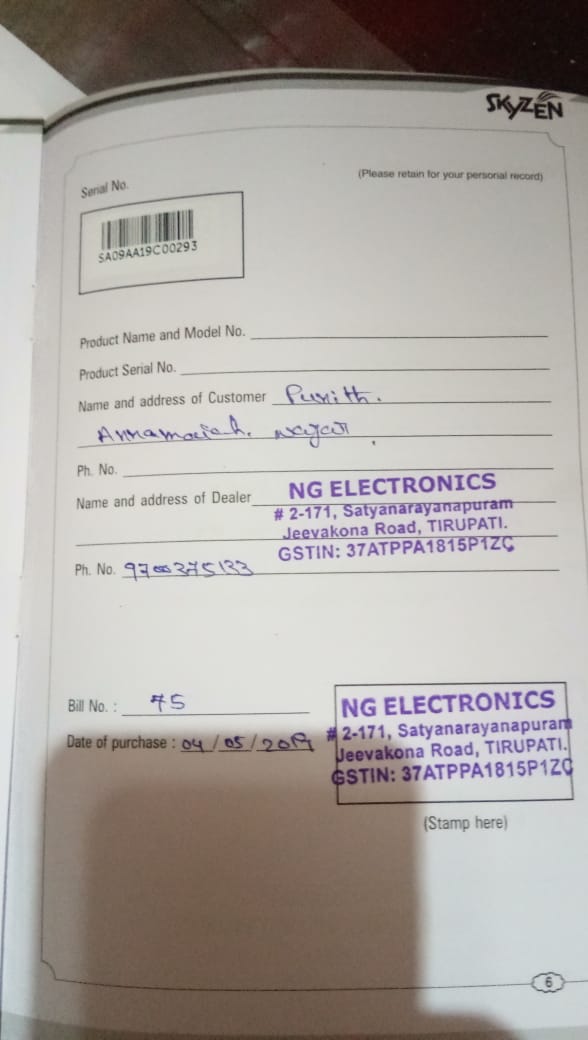 SKYZEN
(Please retain for your personal record)
Serial No.
SA09AA19C00293
Product Name and Model No.
Product Serial No.
Name and address of Customer Punith.
Annamaiah. nagar
Ph. No.
Name and address of Dealer NG ELECTRONICS
# 2-171, Satyanarayanapuram
Jeevakona Road, TIRUPATI.
GSTIN: 37ATPPA1815P1ZC
Ph. No. 9700375133
Bill No. : 75
Date of purchase : 04/05/2019
NG ELECTRONICS
# 2-171, Satyanarayanapuram
Jeevakona Road, TIRUPATI.
GSTIN: 37ATPPA1815P1ZC
(Stamp here)
6